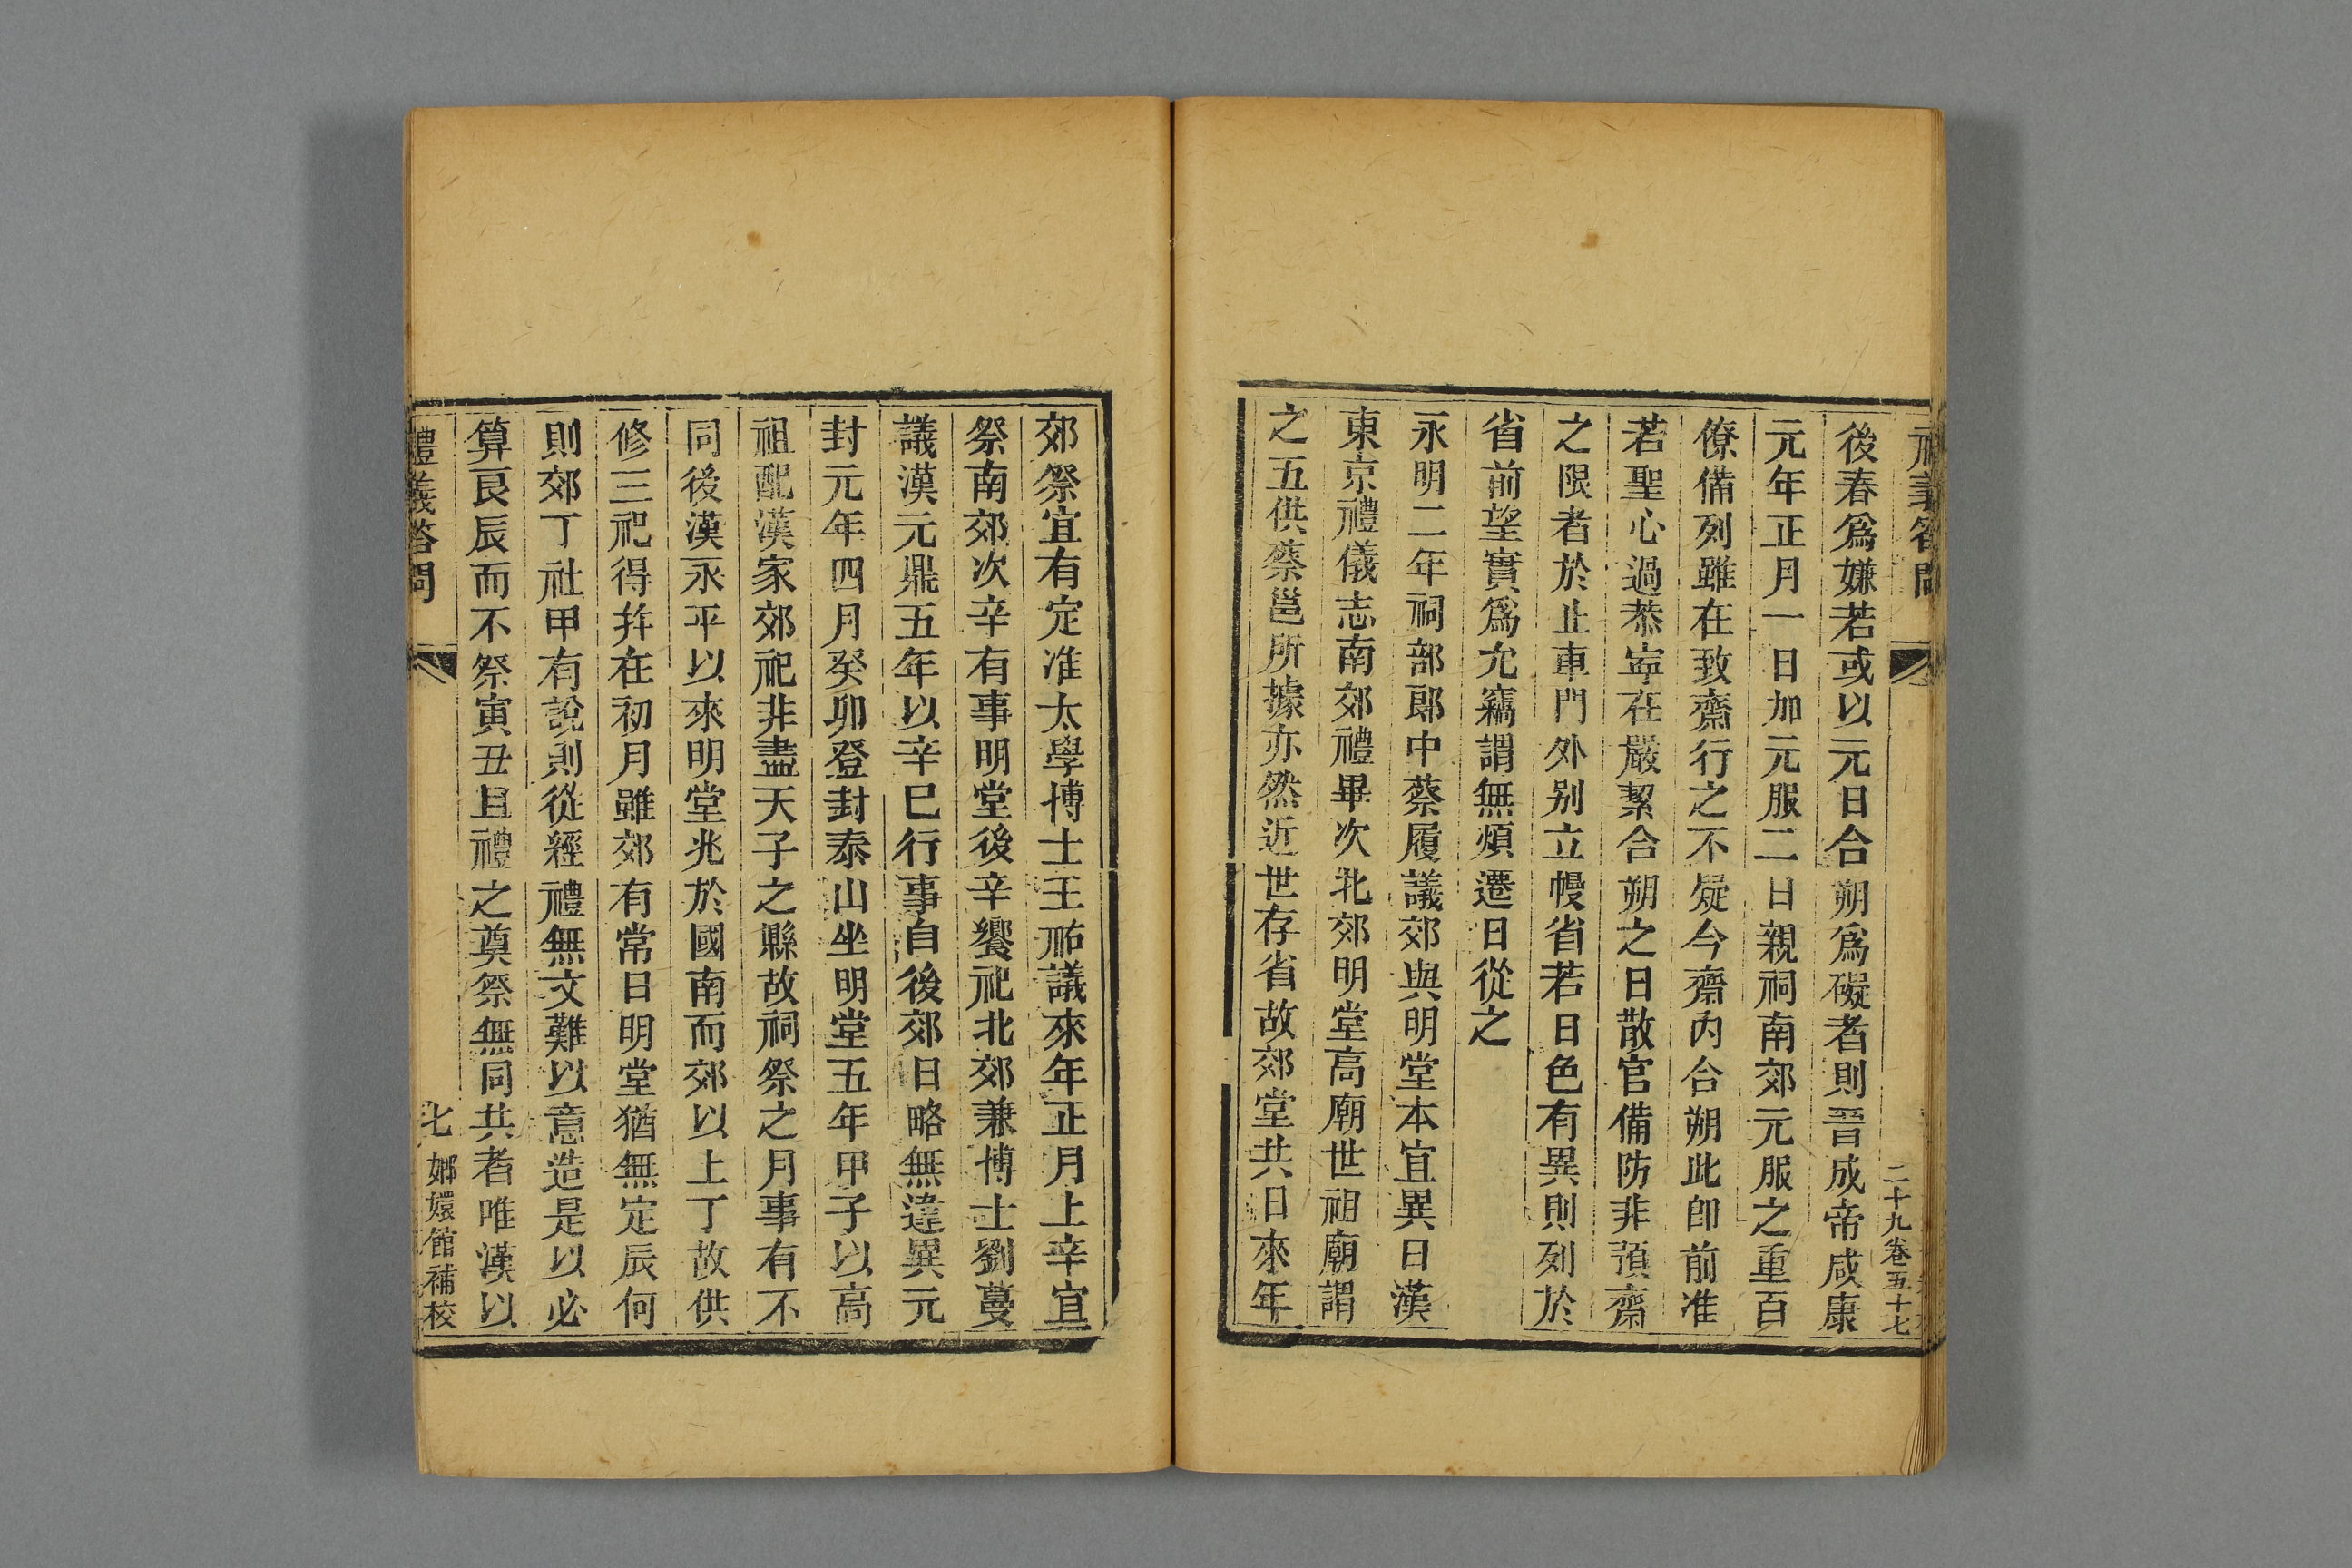 禮義答問
二十九卷五十七
後春爲嫌若或以元日合朔爲礙者則晉成帝咸康
元年正月一日加元服二日親祠南郊元服之重百
僚備列雖在致齋行之不疑今齋內合朔此卽前准
若聖心過恭寧在嚴絜合朔之日散官備防非預齋
之限者於止車門外别立幔省若日色有異則列於
省前望實爲允竊謂無煩遷日從之
永明二年祠部郎中蔡履議郊與明堂本宜異日漢
東京禮儀志南郊禮畢次北郊明堂高廟世祖廟謂
之五供蔡邕所據亦然近世存省故郊堂共日來年
郊祭宜有定准太學博士王祐議來年正月上辛宜
祭南郊次辛有事明堂後辛饗祀北郊兼博士劉蔓
議漢元鼎五年以辛巳行事自後郊日略無違異元
封元年四月癸卯登封泰山坐明堂五年甲子以高
祖配漢家郊祀非盡天子之縣故祠祭之月事有不
同後漢永平以來明堂兆於國南而郊以上丁故供
修三祀得幷在初月雖郊有常日明堂猶無定辰何
則郊丁社甲有說則從經禮無文難以意造是以必
算良辰而不祭寅丑且禮之奠祭無同共者唯漢以
禮義答問
七
嫏嬛館補校